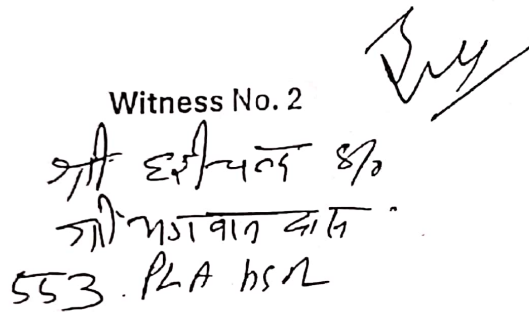 Witness No. 2
श्री हरीचन्द S/o
श्री भगवान दास
553. PLA HSR